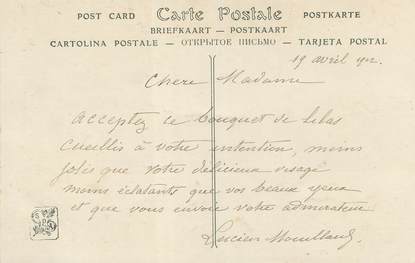 POST CARD Carte Postale POSTKARTE
BRIEFKAART — POSTKAART
CARTOLINA POSTALE — ОТКРЫТОЕ ПИСЬМО — TARJETA POSTAL
19 avril
Chere Madame
Acceptez ce bouquet de lilas
cueillis à votre intention, moins
jolis que votre délicieux visage
moins éclatants que vos beaux yeux
et que vous envoie votre admirateur
Lucien